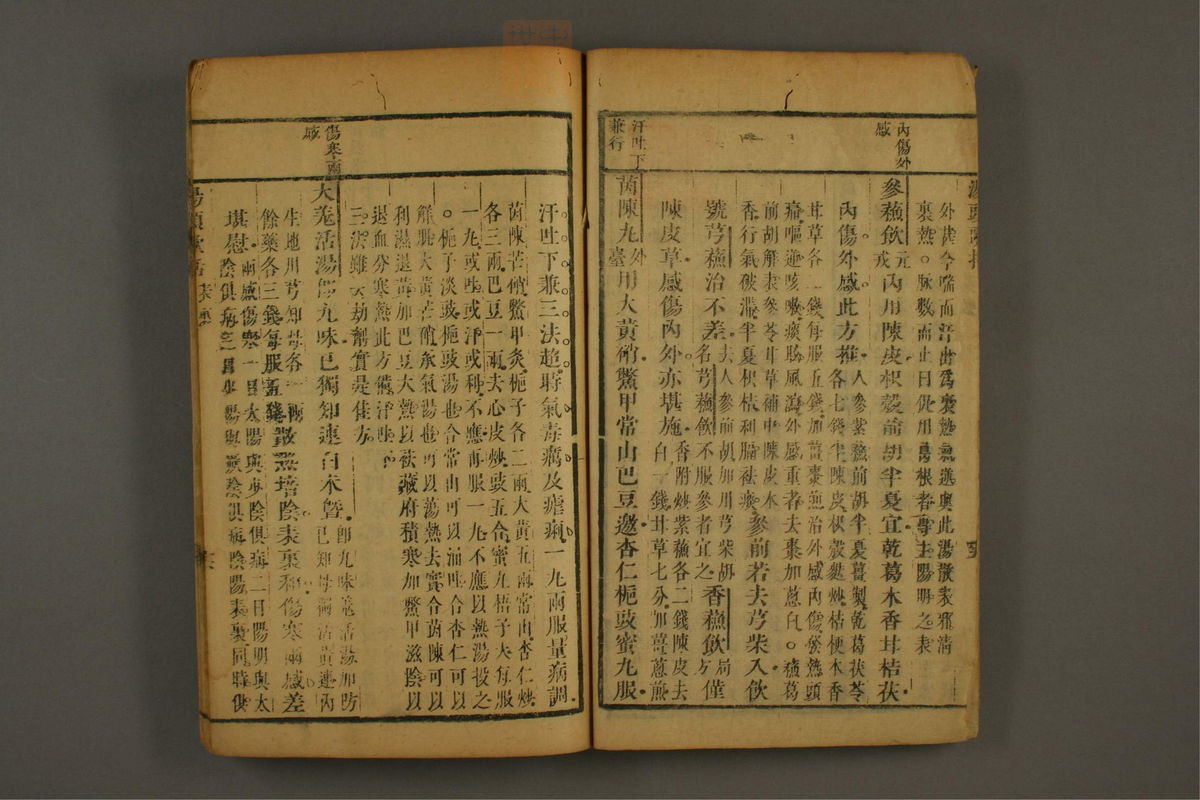 內傷外
感
外甚今喘而汗出為裏熱氣逆與此湯散表邪清
裏熱。脉數而止曰促用葛根者專主陽明之表
參蘇飲元戎內用陳皮枳殼前胡半夏宜乾葛木香甘桔茯
內傷外感此方推人參紫蘇前胡半夏薑製乾葛茯苓
各七錢半陳皮枳殼麩炒桔梗木香
甘草各二錢每服五錢加薑棗煎治外感內傷發熱頭
痛嘔逆咳嗽痰
風瀉外感重者去棗加蔥白。
葛
前胡解表參苓甘草補中陳皮木
香行氣破滯半夏枳桔利膈祛痰參前若去芎柴入飲
號芎蘇治不差去人參前胡加川芎柴胡
名芎蘇飲不服參者宜之香蘇飲局方僅
陳皮草感傷內外亦堪施香附炒紫蘇各二錢陳皮去
白一錢甘草七分加薑蔥煎
汗吐下
兼行
茵陳丸外臺用大黃硝鱉甲常山巴豆邀杏仁梔豉蜜丸服
汗吐下兼三法超時氣毒癘及瘧痢一丸兩服量病調
茵陳芒硝鱉甲炙梔子各二兩大黃五兩常山杏仁炒
各三兩巴豆一兩去心皮炒豉五合蜜丸梧子大每服
一丸或吐或汗或利不應再服一丸不應以熱湯投之
。梔子淡豉梔豉湯也合常山可以湧吐合杏仁可以
解肌大黃芒硝承氣湯也可以蕩熱去實合茵陳可以
利濕退黃加巴豆大熱以祛藏府積寒加鱉甲滋陰以
退血分寒熱此方備汗吐下
三法雖云劫劑實是佳方
傷寒兩
感
大羌活湯即九味己獨知連白朮暨即九味羌活湯加防
己知母獨活黃連白
生地用芎知母各一兩
餘藥各三錢每服五錢散熱培陰表裏和傷寒兩感差
堪慰兩感傷寒一曰太陽與少陰俱病二曰陽明與太
陰俱病三曰少陽與厥陰俱病陰陽表裏同時俱